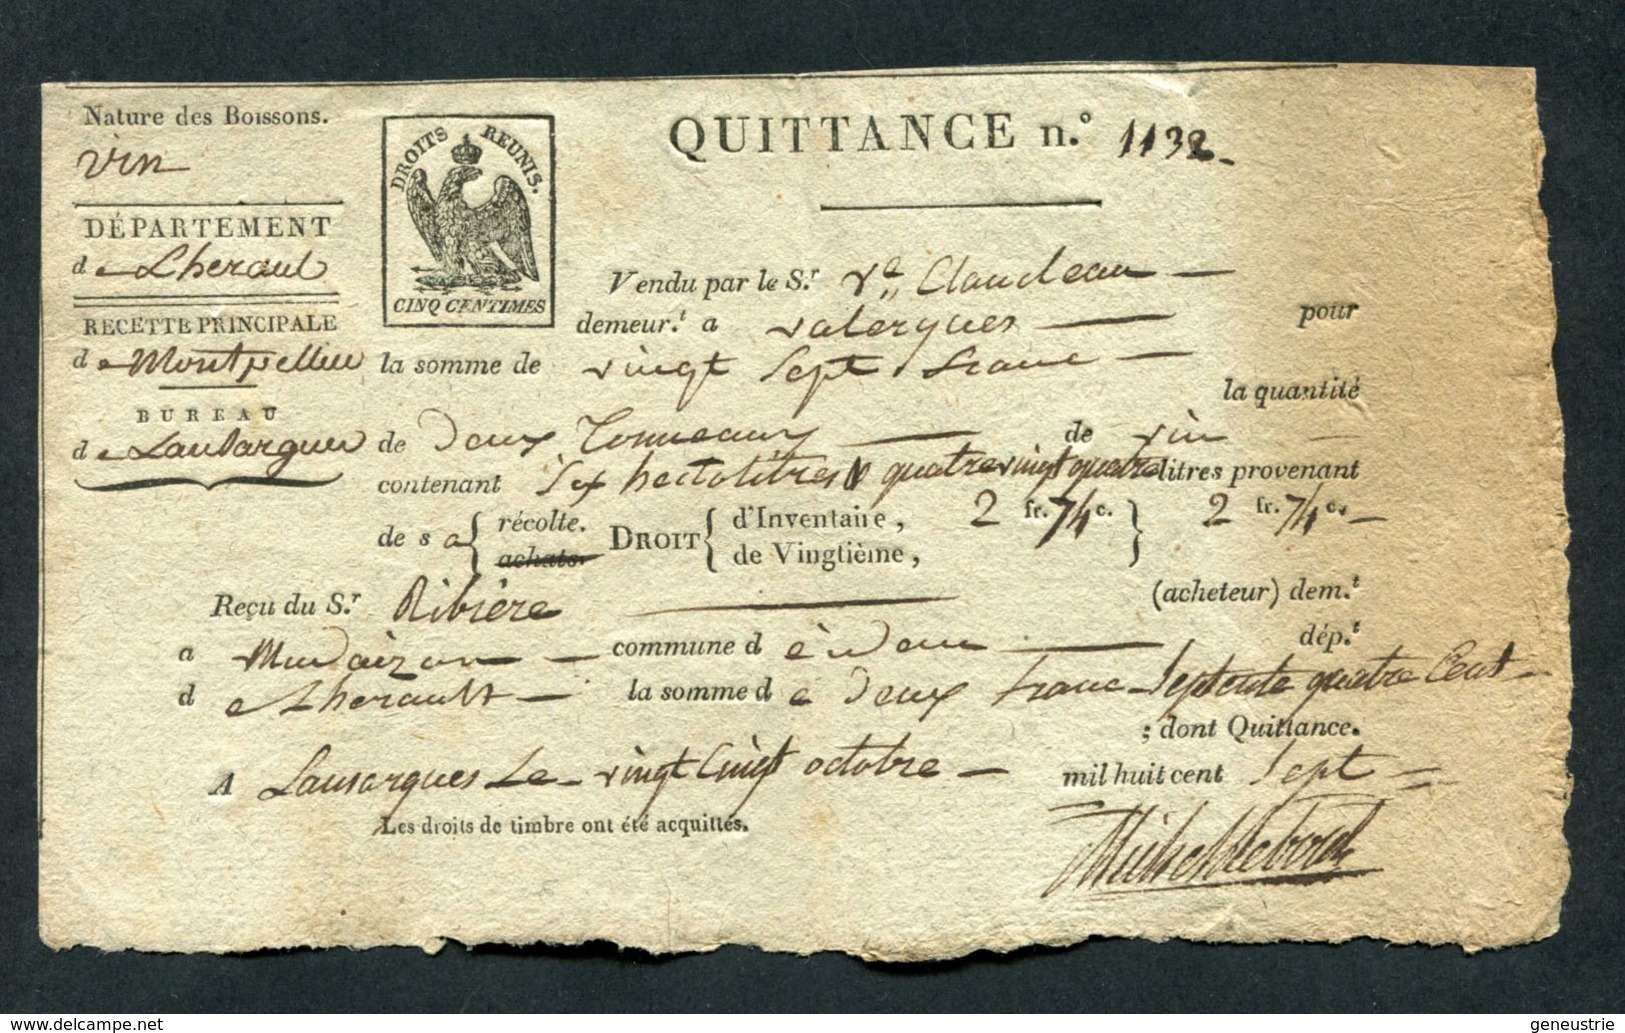 Nature des Boissons.
vin
DÉPARTEMENT
de Lherault
RECETTE PRINCIPALE
de Montpellier
BUREAU
de Lansargues
DROITS REUNIS.
CINQ CENTIMES
QUITTANCE n.° 1132
Vendu par le S.r Ve Claudeau
demeur.t a valergues pour
la somme de vingt Sept franc
la quantité
de deux Tonneaux de vin
contenant Six hectolitres quatrevingt quatre litres provenant
de sa { récolte. achats. DROIT { d'Inventaire, 2 fr. 74 c. } 2 fr. 74 c.
de Vingtième,
Reçu du S.r Ribière (acheteur) dem.t
a Mudaizon commune d dép.t
de Lherault la somme de deux franc Septente quatre Cent
; dont Quittance.
A Lansargues Le vingt Cinq octobre mil huit cent Sept
Les droits de timbre ont été acquittés.
geneustrie